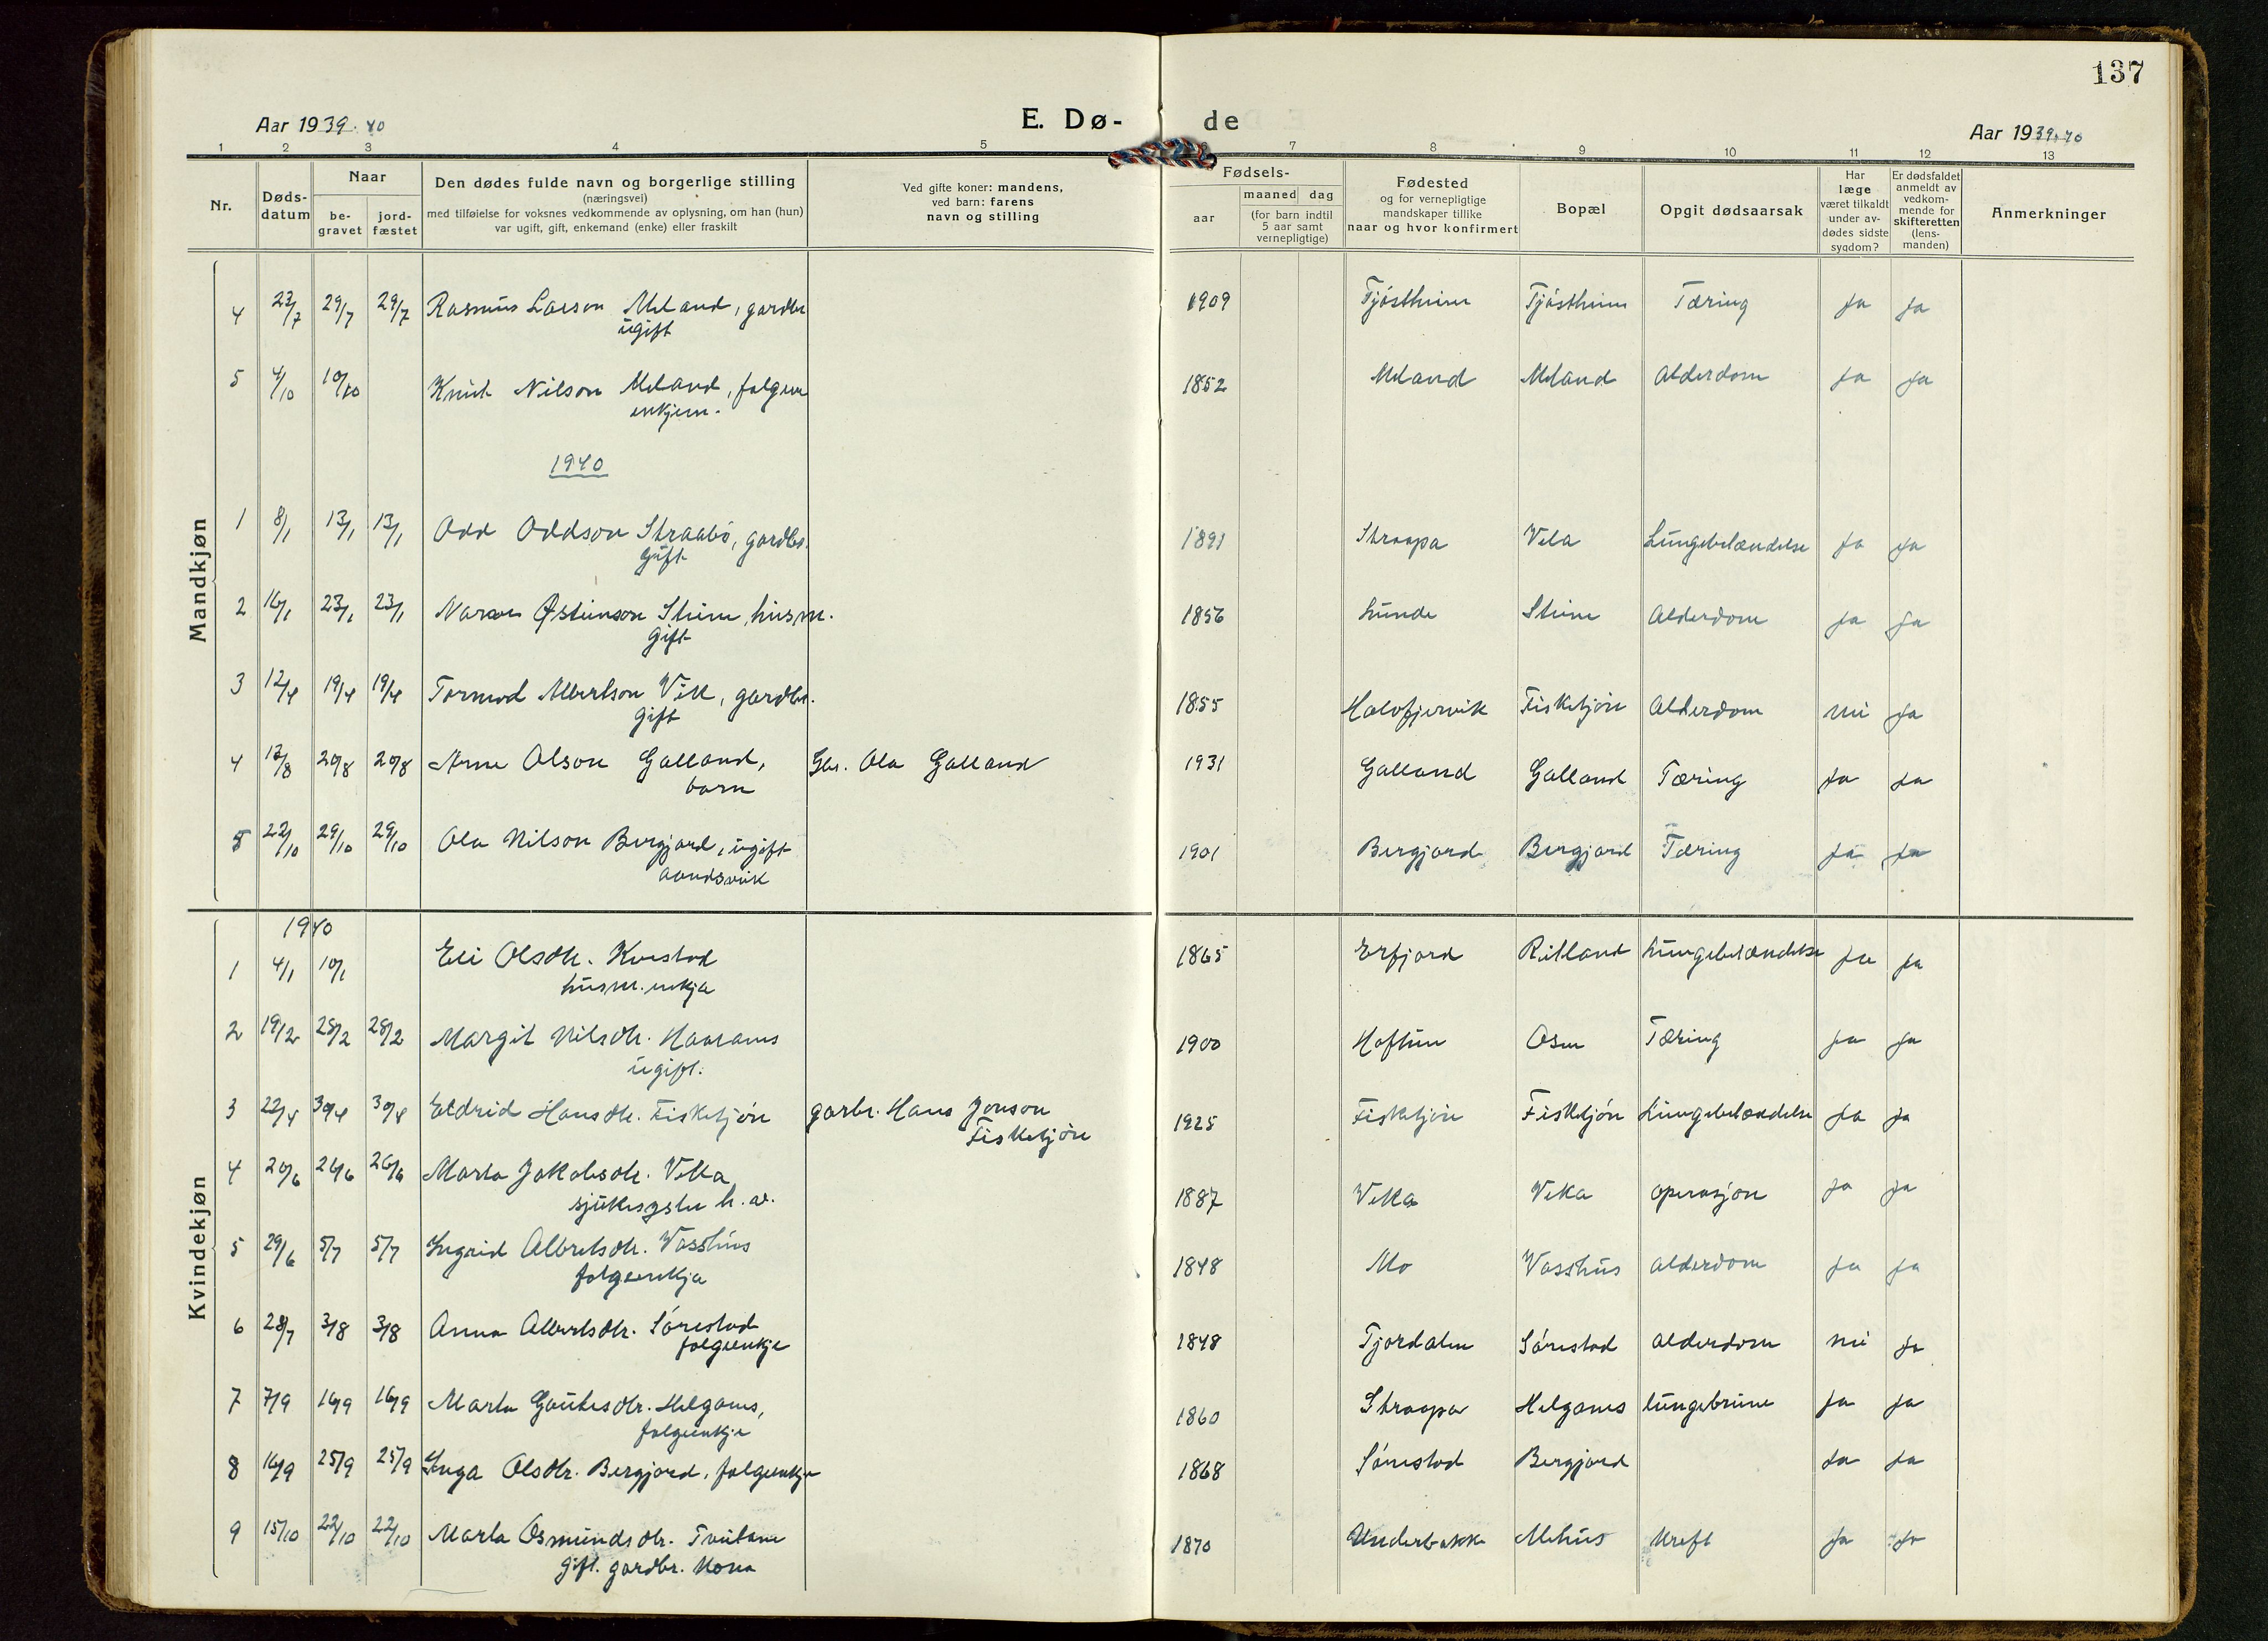 137
Aar 1939. 40
E. Dø-
de
Aar 1939.40
1 2 3 4 5 7 8 9 10 11 12 13
Nr.
Døds-
datum
Naar
be-
gravet
jord-
fæstet
Den dødes fulde navn og borgerlige stilling
(næringsvei)
med tilføielse for voksnes vedkommende av oplysning, om han (hun)
var ugift, gift, enkemand (enke) eller fraskilt
Ved gifte koner: mandens,
ved barn: farens
navn og stilling
Fødsels-
aar
maaned dag
(for barn indtil
5 aar samt
vernepligtige)
Fødested
og for vernepligtige
mandskaper tillike
naar og hvor konfirmert
Bopæl
Opgit dødsaarsak
Har
læge
været tilkaldt
under av-
dødes sidste
sygdom?
Er dødsfaldet
anmeldt av
vedkom-
mende for
skifteretten
(lens-
manden)
Anmerkninger
Mandkjøn
4 23/7 29/7 29/7 Rasmus Larson Meland, gardbr 1909 Tjóstheim Tjóstheim Tæring Ja Ja
ugift
5 4/10 10/10 Knut Nilson Meland, 1852 Meland Meland Alderdom Ja Ja
enkjem.
1940
1 8/1 13/1 13/1 Odd Oddson Straabø, gardbr. 1891 Straapa Vela Lungebetændelse Ja Ja
gift
2 16/1 23/1 23/1 Østeinson Steine, husm. 1856 Lunde Steine Alderdom Ja Ja
gift
3 12/4 19/4 19/4 Tormod Albertson Vik, gardbr. 1855 Halvfjervik Fisketjön Alderdom nei Ja
gift
4 13/8 20/8 20/8 Arne Olson Galland, Gbr. Ola Galland 1931 Galland Galland Tæring Ja Ja
barn
5 22/10 29/10 29/10 Ola Nilson Bergjord, ugift 1901 Bergjord Bergjord Tæring Ja Ja
aandsveik
Kvindekjøn
1940
1 4/1 10/1 Eli Olsdtr. Kvestad 1865 Erfjord Ritland Lungebetændelse Ja Ja
husm. enkja
2 19/2 28/2 28/2 Margit Nilsdtr. 1900 Hoftun Osen Tæring Ja Ja
ugift.
3 22/4 30/4 30/4 Eldrid Hansdtr. Fisketjön garbr. Hans Jonson 1925 Fisketjön Fisketjón Lungebetændelse Ja Ja
Fisketjón
4 20/6 26/6 26/6 Marta Jakobsdtr. Veka 1887 Veka Veka operasjon Ja Ja
5 29/6 5/7 5/7 Ingrid Albretsdtr. Vasshus 1848 Mo Vasshus alderdom Ja Ja
folgeenkja
6 28/7 3/8 3/8 Anna Albertsdtr. Sórestad 1848 Tjordalen Sórestad alderdom nei Ja
folgeenkje
7 7/9 16/9 16/9 Marta Gautesdtr. Helganes, 1860 Straapa Helganes lungebrune Ja Ja
folgeenkje
8 16/9 25/9 25/9 Inga Olsdtr. Bergjord, folgeenkje 1868 Sórestad Bergjord Ja Ja
9 15/10 22/10 22/10 Marta Osmundsdtr. Tveitane 1870 Underbakke Mehus Kreft Ja Ja
gift. gardbr. kona